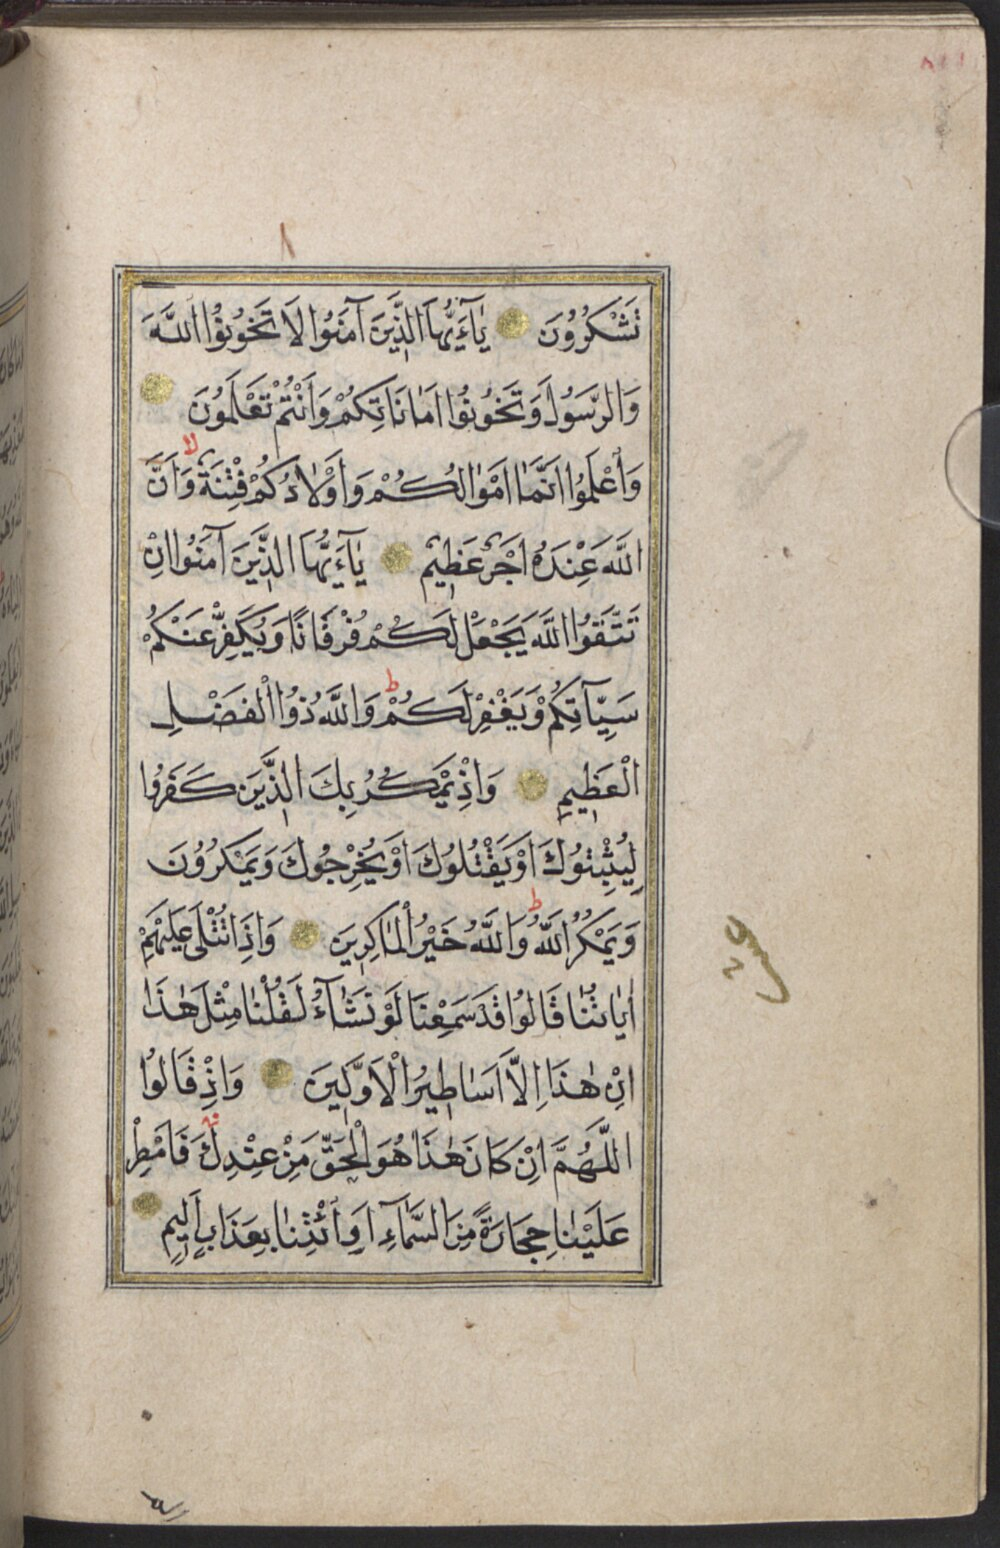 تَشْكُرُونَ يَٓا اَيُّهَا الَّذِينَ اٰمَنُوا لَا تَخُونُوا اللَّهَ
وَالرَّسُولَ وَتَخُونُوا اَمَانَاتِكُمْ وَاَنْتُمْ تَعْلَمُونَ
وَاعْلَمُوا اَنَّمَا اَمْوَالُكُمْ وَاَوْلَادُكُمْ فِتْنَةٌ وَاَنَّ
اللَّهَ عِنْدَهُ اَجْرٌ عَظِيمٌ يَٓا اَيُّهَا الَّذِينَ اٰمَنُوا اِنْ
تَتَّقُوا اللَّهَ يَجْعَلْ لَكُمْ فُرْقَانًا وَيُكَفِّرْ عَنْكُمْ
سَيِّاٰتِكُمْ وَيَغْفِرْ لَكُمْ وَاللَّهُ ذُو الْفَضْلِ
الْعَظِيمِ وَاِذْ يَمْكُرُ بِكَ الَّذِينَ كَفَرُوا
لِيُثْبِتُوكَ اَوْ يَقْتُلُوكَ اَوْ يُخْرِجُوكَ وَيَمْكُرُونَ
وَيَمْكُرُ اللَّهُ وَاللَّهُ خَيْرُ الْمَاكِرِينَ وَاِذَا تُتْلَى عَلَيْهِمْ
اٰيَاتُنَا قَالُوا قَدْ سَمِعْنَا لَوْ نَشَٓاءُ لَقُلْنَا مِثْلَ هٰذَا
اِنْ هٰذَا اِلَّا اَسَاطِيرُ الْاَوَّلِينَ وَاِذْ قَالُوا
اللَّهُمَّ اِنْ كَانَ هٰذَا هُوَ الْحَقَّ مِنْ عِنْدِكَ فَاَمْطِرْ
عَلَيْنَا حِجَارَةً مِنَ السَّمَٓاءِ اَوِ ائْتِنَا بِعَذَابٍ اَلِيمٍ